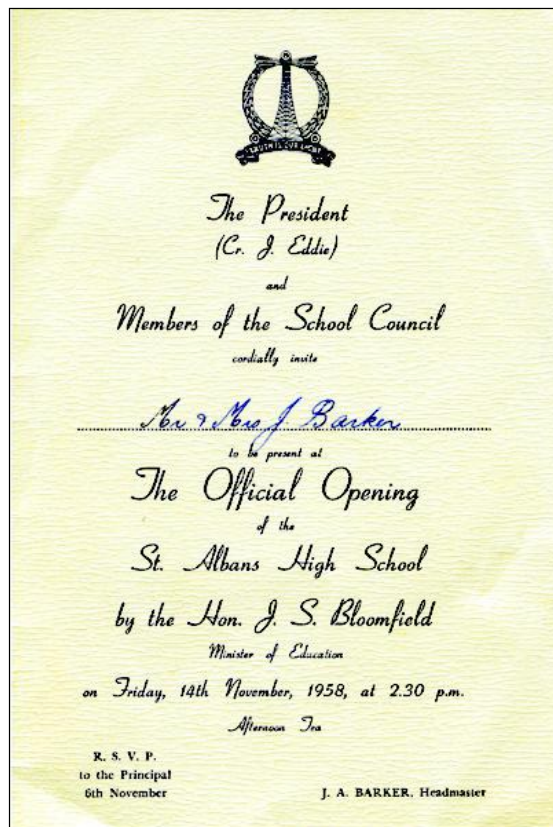 TRUTH IS OUR LIGHT
The President
(Cr. J. Eddie)
and
Members of the School Council
cordially invite
Mr & Mrs J. Barker
to be present at
The Official Opening
of the
St. Albans High School
by the Hon. J. S. Bloomfield
Minister of Education
on Friday, 14th November, 1958, at 2.30 p.m.
Afternoon Tea
R. S. V. P.
to the Principal
6th November
J. A. BARKER, Headmaster